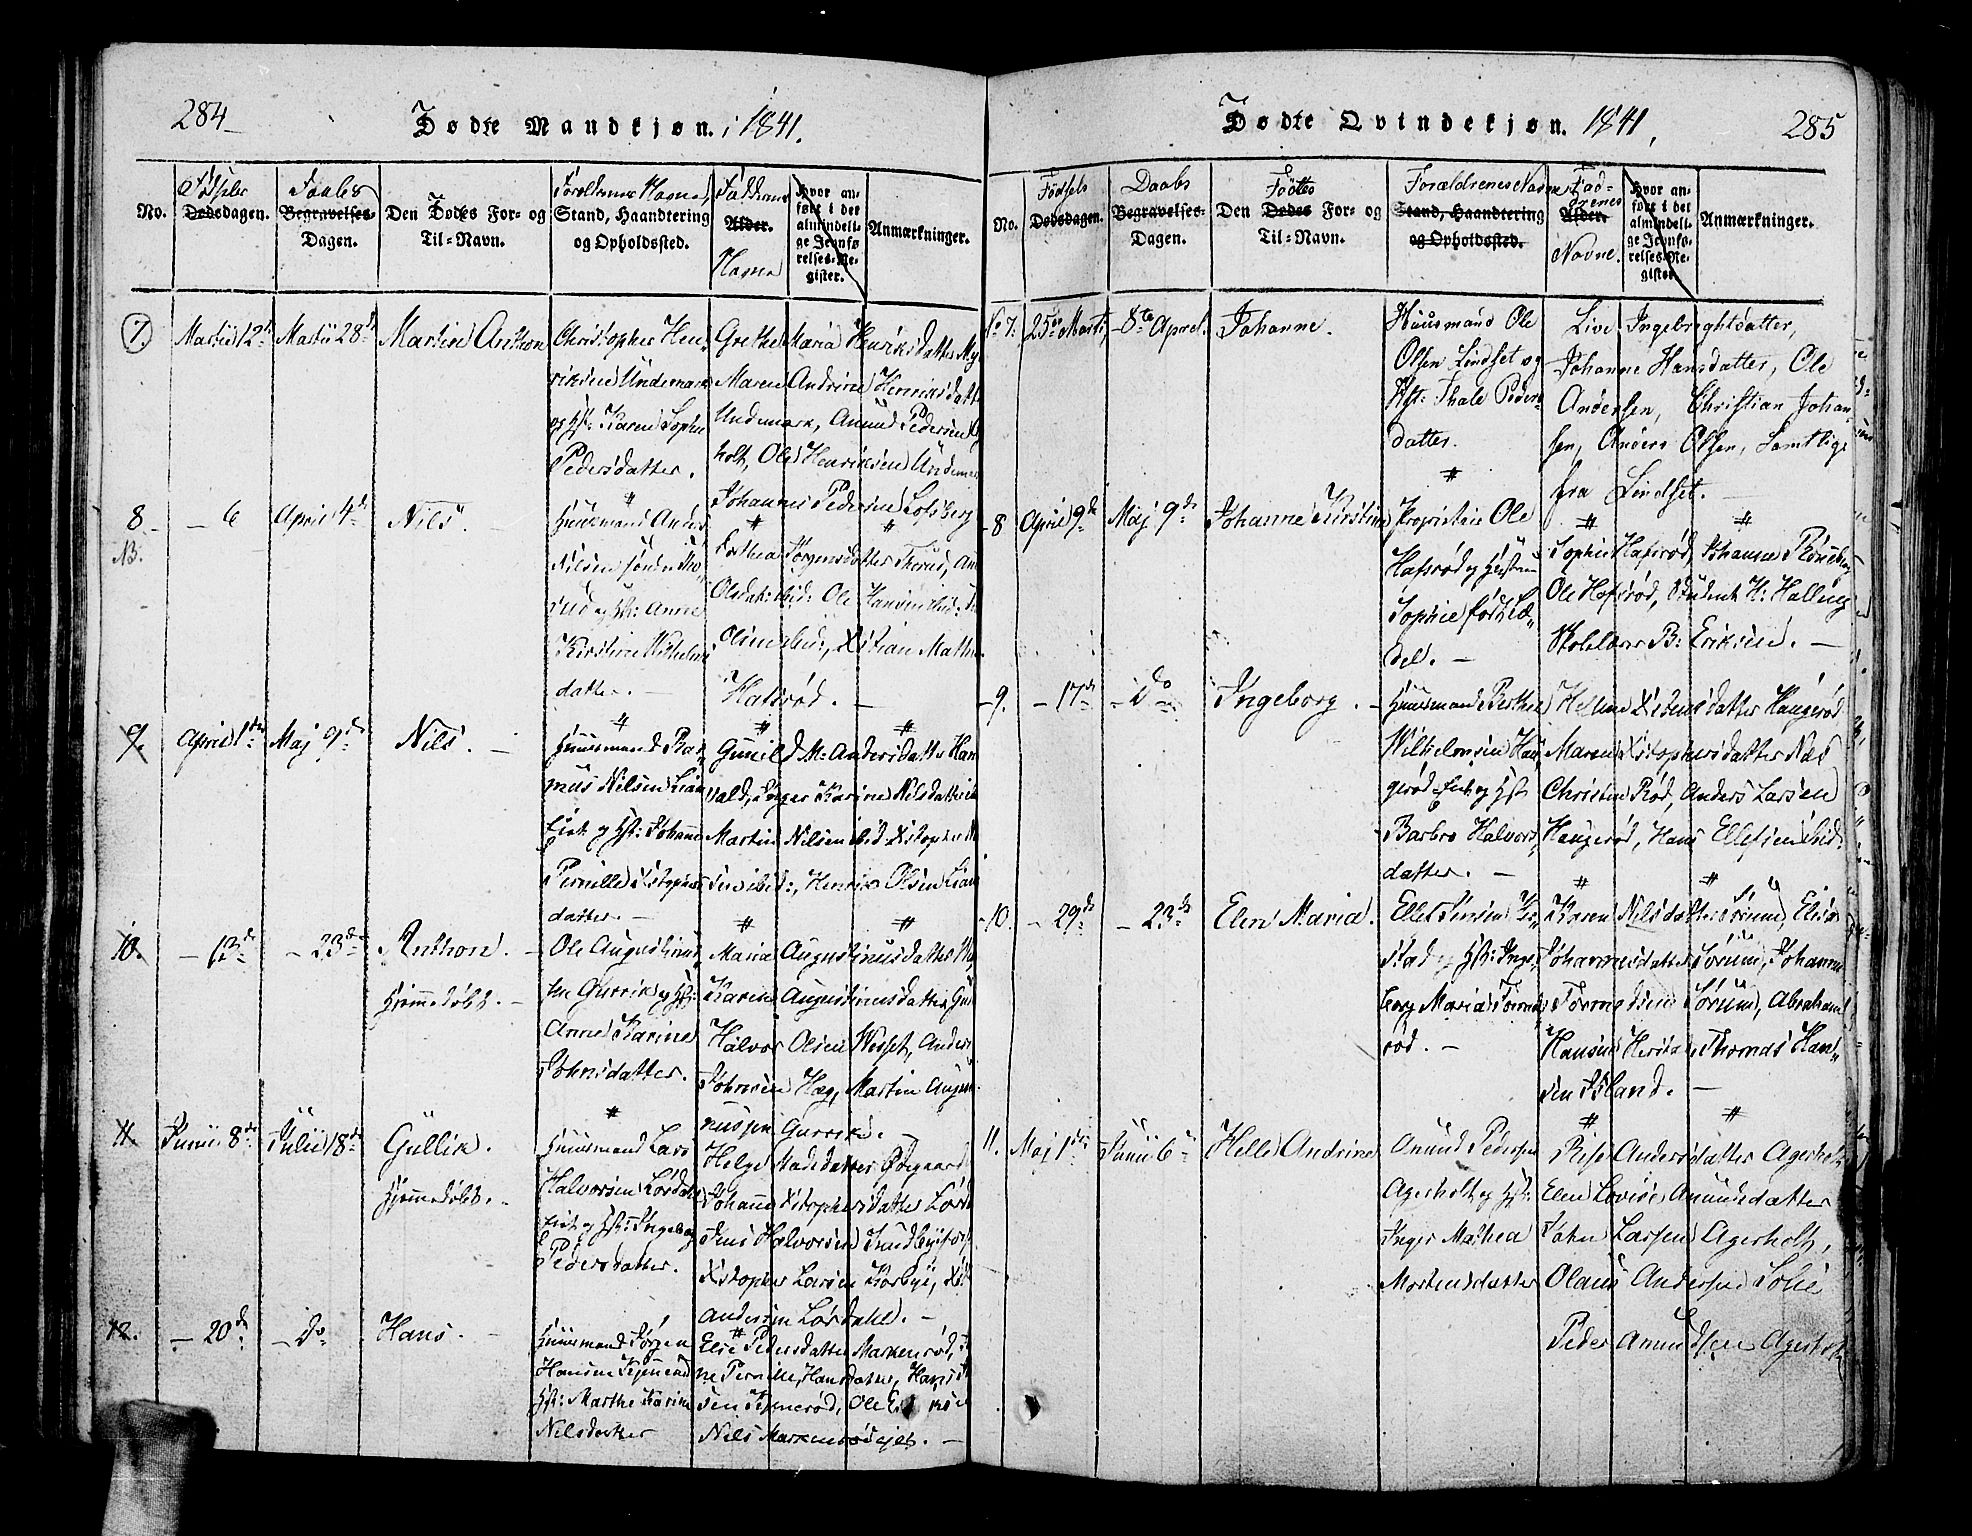 284
Dødte Mandkjøn. i 1841.
No.
Fødsels
Dødsdagen.
Daabs
Begravelses-
Dagen.
Den Dødes For- og
Til-Navn.
Forældrenes Navne,
Stand, Haandtering
og Opholdssted.
Faddernes
Alder.
Navne
Hvor an-
ført i det
almindeli-
ge Jevnfø-
relses-Re-
gister.
Anmærkninger.
7.
Martii 12te
Martii 28de
Martin Anthon
Christopher Hen-
riksen Undemark
og Hst: Karen Sophie
Pedersdatter.
Grethe Maria Henriksdatter
Maren Andrine Henriksdatt
Undemark, Amund Pedersen
holt, Ole Henriksen Undem
Johannes Pedersen Lofsberg
8
NB.
- 6
April 4de
Nils.
Huusmand Anders
Nilsen
rud og Hst: Anne
Kirstine Wilhelms
datter.
Jørgensdatter Therud, An
Olsdat: ibid: Ole Hansen ibid:
Olsen ibid:, Xstian Mathi
Hafsrød.
9.
April 1ste
Maj 9de
Nils.
Huusmand Ras-
mus Nilsen Lian
Eiet og Hst: Johanne
Pernille Xstophers
datter.
Gunild M: Andersdatter Han
vald, Inger Karine Nilsdatter
Martin Nilsen ibid Xstopher
sen ibid:, Henrik Olsen Lian
10.
- 13de
- 23de
Anthon.
Hjemmedøbt.
Ole Augustinus-
sen Gurrik og Hst:
Anne Karine
Johnsdatter.
Maria Augustinusdatter
Karine Augustinusdatter Gu
Halvor Olsen Wesset, Anders
Johnsen Hæg, Martin Augus
nussen Gurrik.
11.
Junii 8de
Julii 18de
Gullik.
Hjemmedøbt.
Huusmand Lars
Halvorsen Lørdahl
Eiet og Hst: Ingeborg
Pedersdatter.
Helge Madsdatter Ødegaard
Johanne Xstophersdatter Lørd
Jens Halvorsen
Xstopher Larsen Kårbye,
Andersen Lørdahl.
12.
- 20de
- Do
Hans.
Huusmand Jørgen
Hansen
Hst: Marthe Karine
Nilsdatter
Else Pedersdatter Markenrød,
ne Pernille Hansdatter, Hans
sen
Nils Markenrødejet.
Dødte Qvindekjøn. 1841.
285
No.
Fødsels
Dødsdagen.
Daabs
Begravelses-
Dagen.
Fødtes
Den Dødes For- og
Til-Navn.
Forældrenes Navne
Stand, Haandtering
og Opholdssted.
Fad-
drenes
Alder.
Navne.
Hvor an-
ført i det
almindeli-
ge Jevnfø-
relses-Re-
gister
Anmærkninger.
No 7.
25de Marti,
8de April.
Johanne.
Huusmand Ole
Olsen Lindset og
Hst: Thale Peders-
datter.
Live Ingebrightsdatter,
Johanne Hansdatter, Ole
Andersen, Christian Johan
sen, Anders Olsen, Samtlige
fra Lindset.
8
April 9de
Maj 9de
Johanne Kirstine
Proprietair Ole
Hafsrød og Hustrue
Sophie født Læ-
del.
Sophie Hafsrød, Johanne
Ole Hafsrød, Student H: Halling
Skolelærer B: Eriksen.
9.
- 17de
- Do
Ingeborg.
Huusmand Berthel
Wilhelmsen Hau-
gerød-Eiet og Hst
Barbro Halvors-
datter.
Helene Xstensdatter Haugerød
Maren Xstophersdatter Næs
Christen Rød, Anders Larsen
Haugerød, Hans Ellefsen ibid:
10.
- 29de
- 23de
Elen Maria.
Ellef Jensen
stad og Hst: Inge-
borg Maria
rød.
Karen Nilsdatter Sørum, Elise
Johannesdatter Sørum, Johannes
Sørum, Abraham
Hansen Thomas Han-
sen Island.
11.
Maj 1ste
Junii 6te
Helle Andrine
Amund Pedersen
Agerholt og Hst:
Inger Mathea
Mortensdatter
Rise Andersdatter Agerholt
Elen Lovise Amundsdatter
John Larsen Agerholt,
Olaus Andersen Solie
Peder Amundsen Agerholt